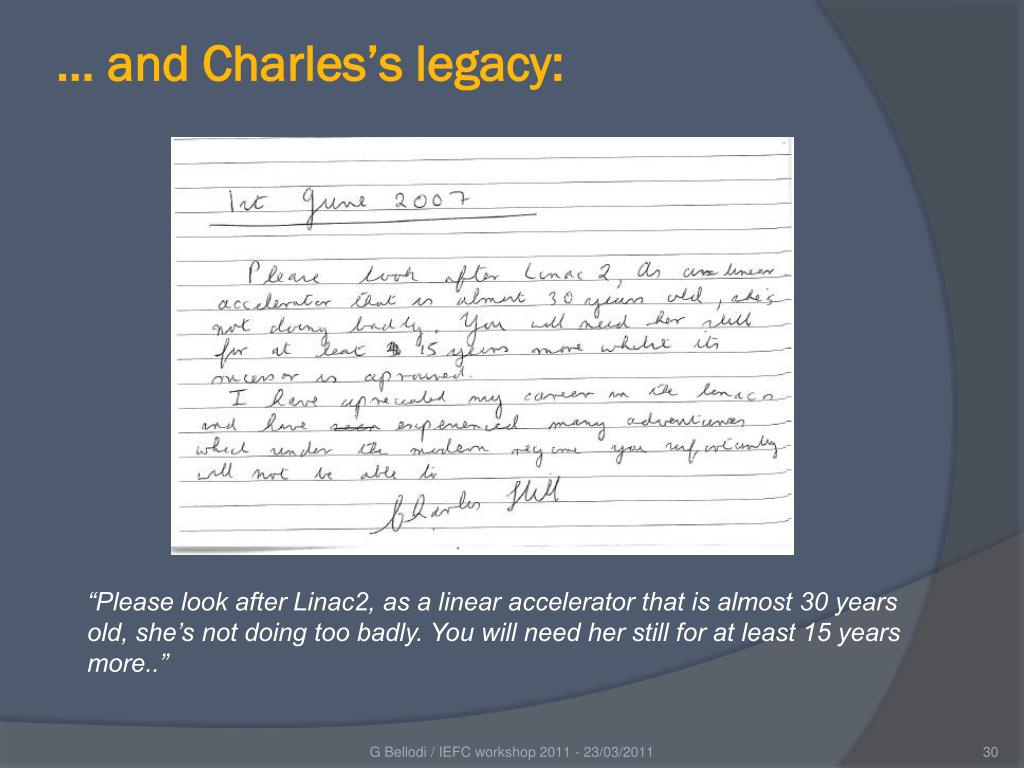 ... and Charles’s legacy:
1st June 2007
Please look after Linac 2, As a linear
accelerator that is almost 30 years old, she's
not doing badly. You will need her still
for at least 15 years more whilst its
sucessor is aproved.
I have apreciated my career in the linacs
and have seen experienced many adventures
which under the modern regime you unfortunatly
will not be able to
Charles Hill
“Please look after Linac2, as a linear accelerator that is almost 30 years
old, she’s not doing too badly. You will need her still for at least 15 years
more..”
G Bellodi / IEFC workshop 2011 - 23/03/2011
30